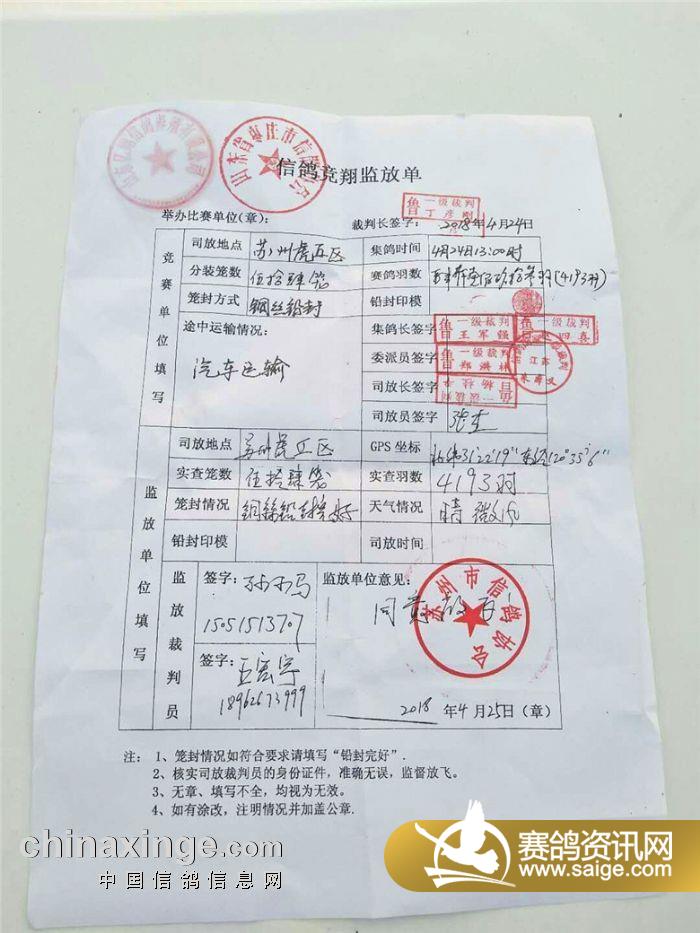 山东省枣庄市信鸽协会
信鸽竞翔监放单
鲁 一级裁判
丁彦刚
举办比赛单位(章): 裁判长签字: 2018年4月24日
竞赛单位填写
司放地点 苏州虎丘区 集鸽时间 4月24日13:00时
分装笼数 伍拾肆笼 赛鸽羽数 (4193羽)
笼封方式 钢丝铅封 铅封印模
途中运输情况: 汽车运输
集鸽长签字 鲁 一级裁判 王军强 一级裁判
委派员签字 一级裁判 郑洪林 江苏
司放长签字 一级裁判
司放员签字
监放单位填写
司放地点 苏州虎丘区 GPS 坐标 北纬31°22′19″ 东经120°35′6″
实查笼数 伍拾肆笼 实查羽数 4193羽
笼封情况 完好 天气情况 晴 微风
铅封印模 司放时间
监放裁判员
签字: 15051513707
签字: 王宏宇 18962673999
监放单位意见: 同意放飞
苏州市信鸽协会
2018 年4月25日(章)
注: 1、笼封情况如符合要求请填写“铅封完好”.
2、核实司放裁判员的身份证件，准确无误，监督放飞。
3、无章、填写不全，均视为无效。
4、如有涂改，注明情况并加盖公章.
chinaxinge.com
中国信鸽信息网
赛鸽资讯网
www.saige.com